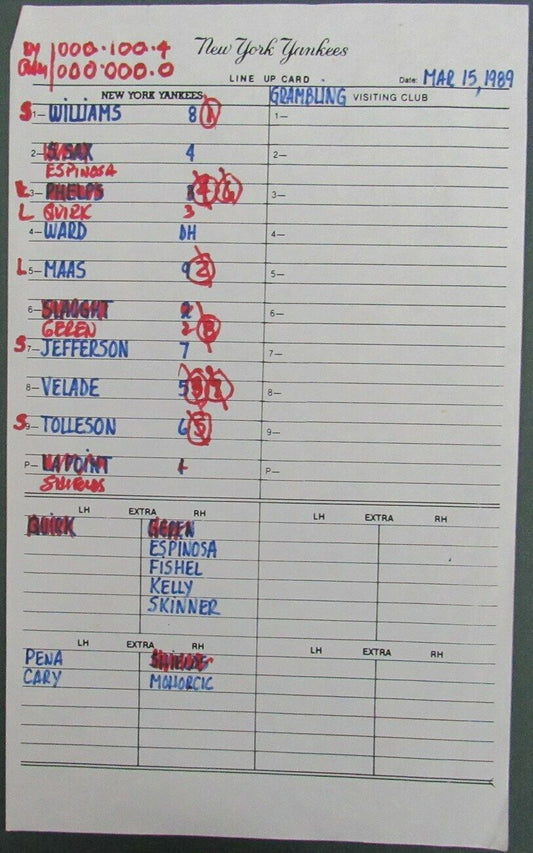 NY 000.100.4
000.000.0
New York Yankees
LINE UP CARD
Date: MAR 15, 1989
NEW YORK YANKEES
GRAMBLING VISITING CLUB
S 1- WILLIAMS 8 1
1-
2- S. SAX 4
ESPINOSA
2-
3- PHELPS
3-
L QUIRK 3
4- WARD DH
4-
L 5- MAAS 9 2
5-
6- SLAUGHT 2
GEREN 2
6-
S 7- JEFFERSON 7
7-
8- VELADE 5
8-
S 9- TOLLESON 6 5
9-
P- LAPOINT 1
SHIELDS
P-
LH EXTRA RH
LH EXTRA RH
QUIRK GEREN
ESPINOSA
FISHEL
KELLY
SKINNER
LH EXTRA RH
LH EXTRA RH
PENA SHIELDS
CARY MOHORCIC